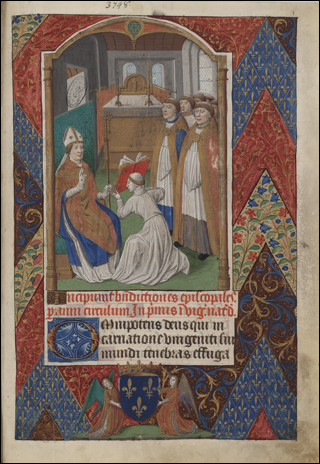 3748
Incipiunt bndictiones episcopales
p anni circulum. In pmis i vig natd.
Omnipotens deus qui in
carnatione unigeniti sui
mundi tenebras effuga